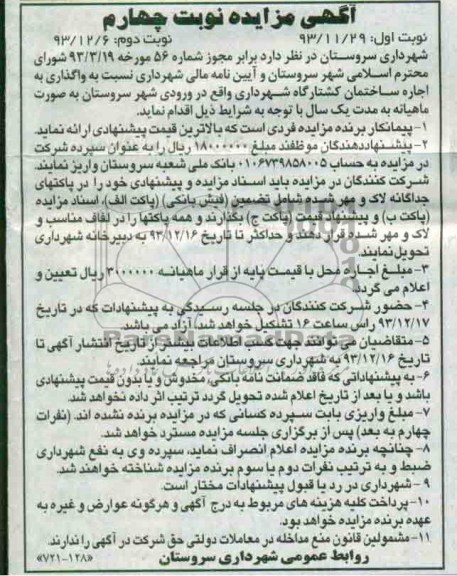 آگهی مزایده نوبت چهارم
نوبت اول: ۹۳/۱۱/۲۹ نوبت دوم: ۹۳/۱۲/۶
شهرداری سروستان در نظر دارد برابر مجوز شماره ۵۶ مورخه ۹۳/۳/۱۹ شورای
محترم اسلامی شهر سروستان و آیین نامه مالی شهرداری نسبت به واگذاری به
اجاره ساختمان کشتارگاه شهرداری واقع در ورودی شهر سروستان به صورت
ماهیانه به مدت یک سال با توجه به شرایط ذیل اقدام نماید.
۱- پیمانکار برنده مزایده فردی است که بالاترین قیمت پیشنهادی ارائه نماید.
۲- پیشنهاددهندگان موظفند مبلغ ۱۸۰۰۰۰۰۰ ریال را به عنوان سپرده شرکت
در مزایده به حساب ۰۱۰۶۷۳۹۸۵۸۰۰۵ بانک ملی شعبه سروستان واریز نمایند.
شرکت کنندگان در مزایده باید اسناد مزایده و پیشنهادی خود را در پاکتهای
جداگانه لاک و مهر شده شامل تضمین (فیش بانکی) (پاکت الف)، اسناد مزایده
(پاکت ب) و پیشنهاد قیمت (پاکت ج) بگذارند و همه پاکتها را در لفاف مناسب و
لاک و مهر شده قرار دهند و حداکثر تا تاریخ ۹۳/۱۲/۱۶ به دبیرخانه شهرداری
تحویل نمایند.
۳- مبلغ اجاره محل با قیمت پایه از قرار ماهیانه ۳۰۰۰۰۰۰ ریال تعیین و
اعلام می گردد.
۴- حضور شرکت کنندگان در جلسه رسیدگی به پیشنهادات که در تاریخ
۹۳/۱۲/۱۷ راس ساعت ۱۶ تشکیل خواهد شد، آزاد می باشد.
۵- متقاضیان می توانند جهت کسب اطلاعات بیشتر از تاریخ انتشار آگهی تا
تاریخ ۹۳/۱۲/۱۶ به شهرداری سروستان مراجعه نمایند.
۶- به پیشنهاداتی که فاقد ضمانت نامه بانکی، مخدوش و یا بدون قیمت پیشنهادی
باشد و یا بعد از تاریخ اعلام شده تحویل گردد ترتیب اثر داده نخواهد شد.
۷- مبلغ واریزی بابت سپرده کسانی که در مزایده برنده نشده اند. (نفرات
چهارم به بعد) پس از برگزاری جلسه مزایده مسترد خواهد شد.
۸- چنانچه برنده مزایده اعلام انصراف نماید، سپرده وی به نفع شهرداری
ضبط و به ترتیب نفرات دوم یا سوم برنده مزایده شناخته خواهند شد.
۹- شهرداری در رد یا قبول پیشنهادات مختار است.
۱۰- پرداخت کلیه هزینه های مربوط به درج آگهی و هرگونه عوارض و غیره به
عهده برنده مزایده خواهد بود.
۱۱- مشمولین قانون منع مداخله در معاملات دولتی حق شرکت در آگهی را ندارند.
روابط عمومی شهرداری سروستان «۷۲۱-۱۲۸»